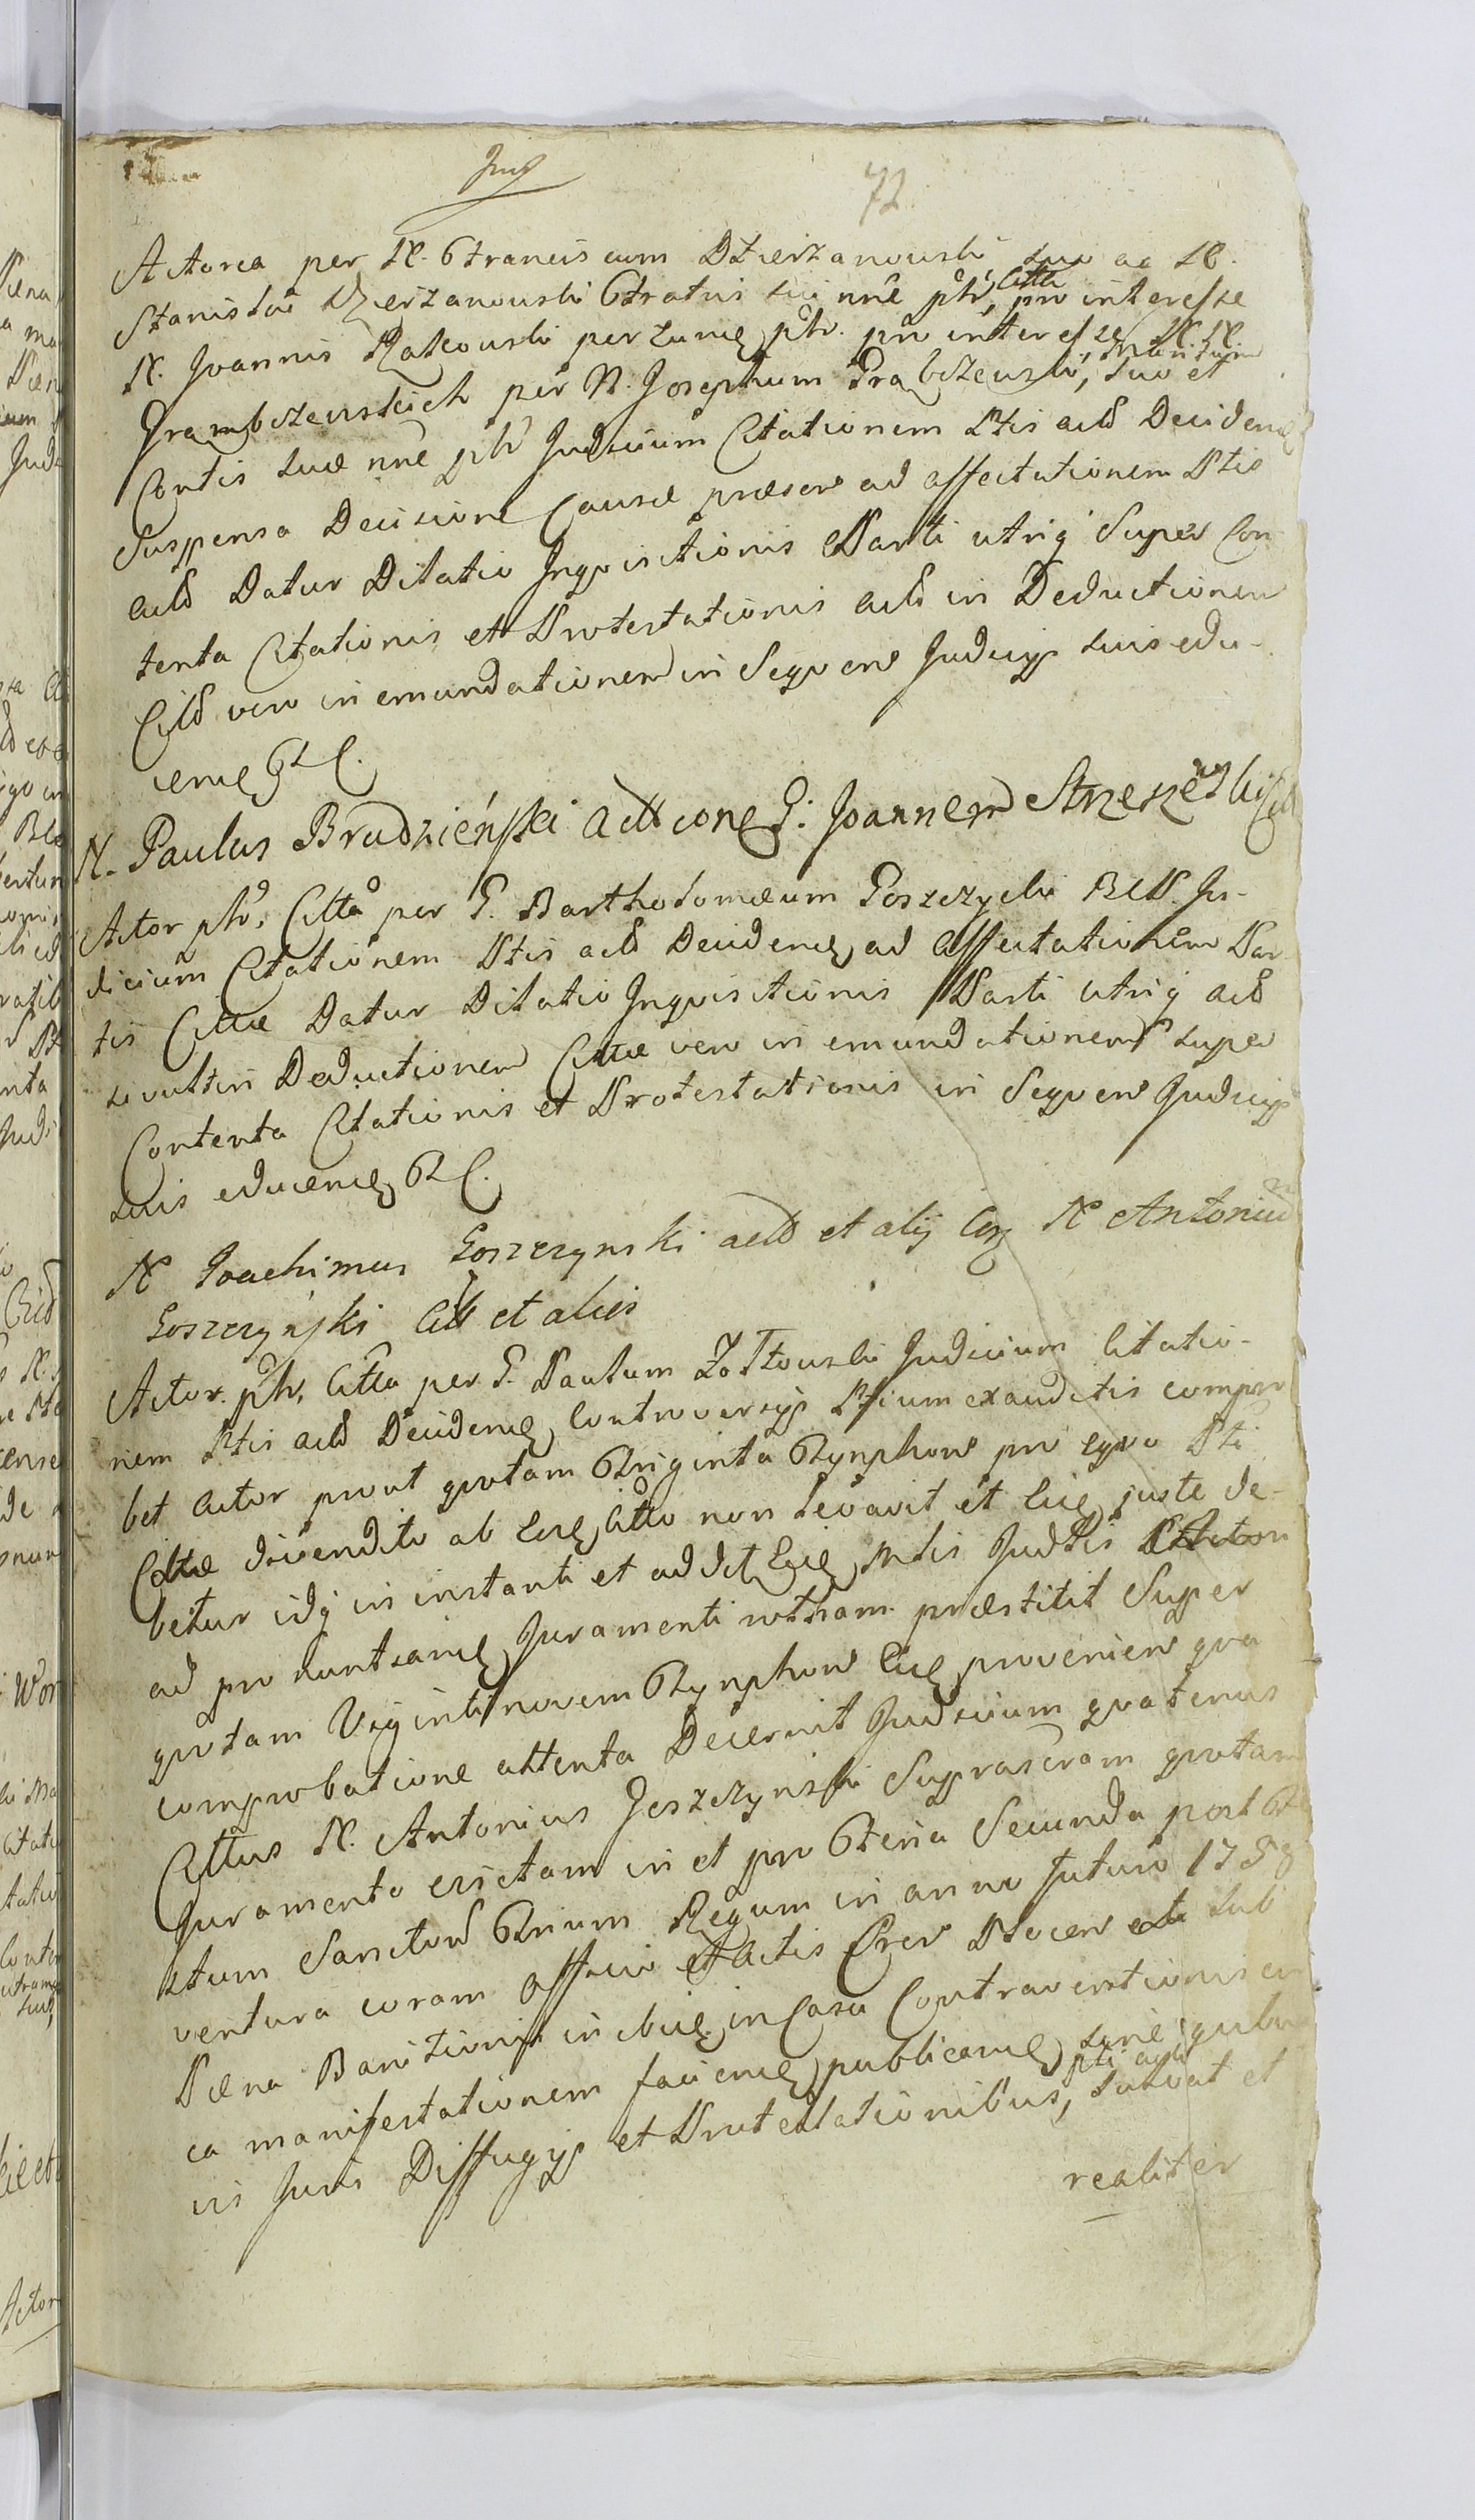 72
Actorea per N. Franciscum Dzierzanowski suo ac N.
Stanislai Dzierzanowski Fratris sui nne phr, Citta pro interesse
N. Joannis Rakowski personae phr. pro interesse N.N.
Grambczewskich per N. Josephum Grabczewski, Maritum suo et
Contis suae nne phr Judicium Citationem Ptis actd Decidendo
Suspensa Decisione Causae praesen ad affectationem Ptis
actd Datur Dilatio Inqvisitionis Parti utriq Super Con
tenta Citationis et Protestationis actd in Deductionem
Citd vero in emundationem in Seqven Judicijs suis edu-
cend
N. Paulus Brudzieński Actione G. Joannem Strzeszewski Citt
Actor phr, Citta per G. Bartholomaeum Goszczycki Ju-
dicium Citationem Ptis actd Decidend ad Affectationem Par
tis Cittae Datur Dilatio Inqvisitionis Parti utriq actd
in Deductionem Cittae vero in emundationem super
Contenta Citationis et Protestationis in Seqven Judicijs
suis educend
N Joachimus Goszczynski actd et alij Con N Antonium
Goszczyński Citt et alios
Actor. phr, Citta per G. Paulum Zołtowski Judicium Citatio-
nem Ptis actd Decidend Controversijs Ptium exauditis compro
bet Actor prout qvotam Triginta Tynphon pro eqvo Pti
Cittae divendito ab Citto non levavit et juste de-
betur idq in instanti et addit Judtis Actor
ad pronuntiand Juramenti rotham praestitit Super
qvotam Viginti novem Tynphon provenien qva
comprobatione attenta Decernit Judicium qvatenus
Cittus N. Antonius Goszczynski Suprascram qvotam
Juramento evictam in et pro Feria Secunda post
stum Sanctor Trium Regum in anno futuro 1758
ventura coram Officio et Actis Cren Plocen sub
Paena Banitionis in in Casu Contraventionis
ca manifestationem faciend publicand sine qvibu
vis Juris Diffugijs et Protestationibus, pti actd solvat et
realiter